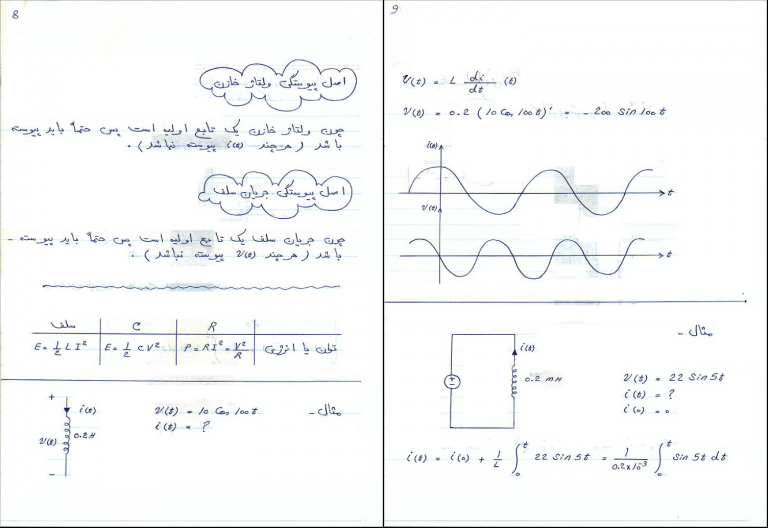 8
اصل پیوستگی ولتاژ خازن
چون ولتاژ خازن یک تابع اولیه است پس حتماً باید پیوسته
باشد (هرچند i(t) پیوسته نباشد).
اصل پیوستگی جریان سلف
چون جریان سلف یک تابع اولیه است پس حتماً باید پیوسته -
باشد (هرچند v(t) پیوسته نباشد).
سلف C R
E = 1/2 LI² E = 1/2 CV² P = RI² = V²/R توان یا انرژی
مثال -
V(t) = 10 Cos 100t
i(t) = ?
+
i(t)
V(t)
0.2H
-
9
V(t) = L di/dt (t)
V(t) = 0.2 (10 Cos 100t)' = -200 Sin 100t
i(t)
t
V(t)
t
مثال -
i(t)
0.2 mH
V(t) = 22 Sin 5t
i(t) = ?
i(0) = 0
i(t) = i(0) + 1/L ∫₀ᵗ 22 Sin 5t = 1/0.2×10⁻³ ∫₀ᵗ Sin 5t dt